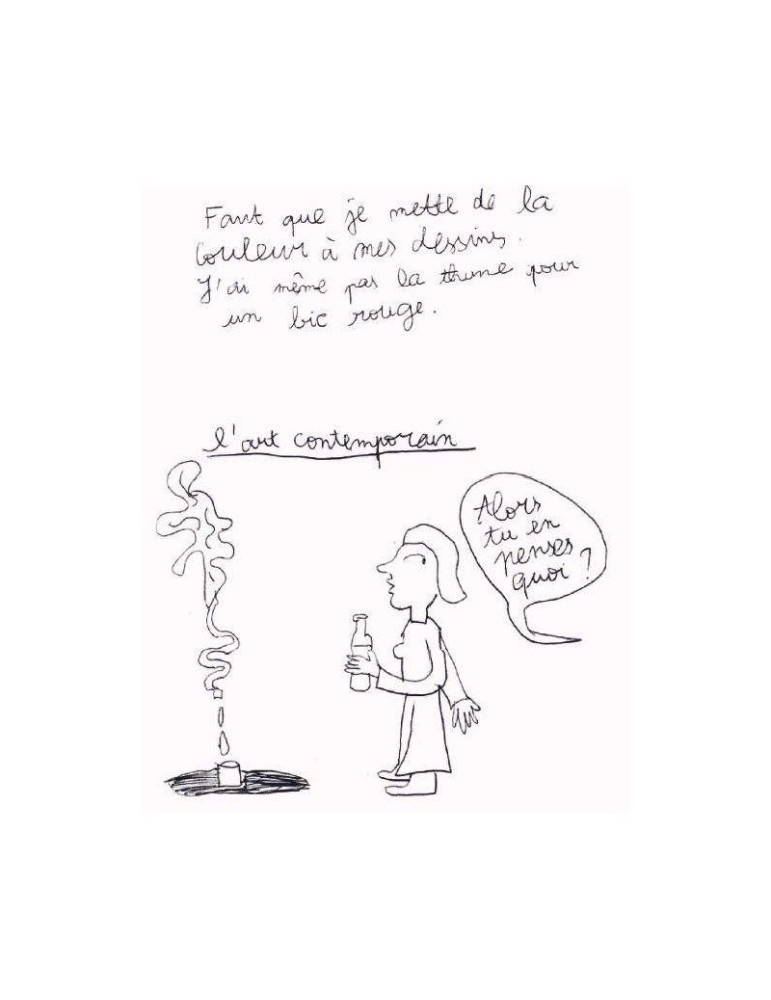 Faut que je mette de la
couleur à mes dessins.
J'ai même pas la thune pour
un bic rouge.
l'art contemporain
Alors
tu en
penses
quoi ?